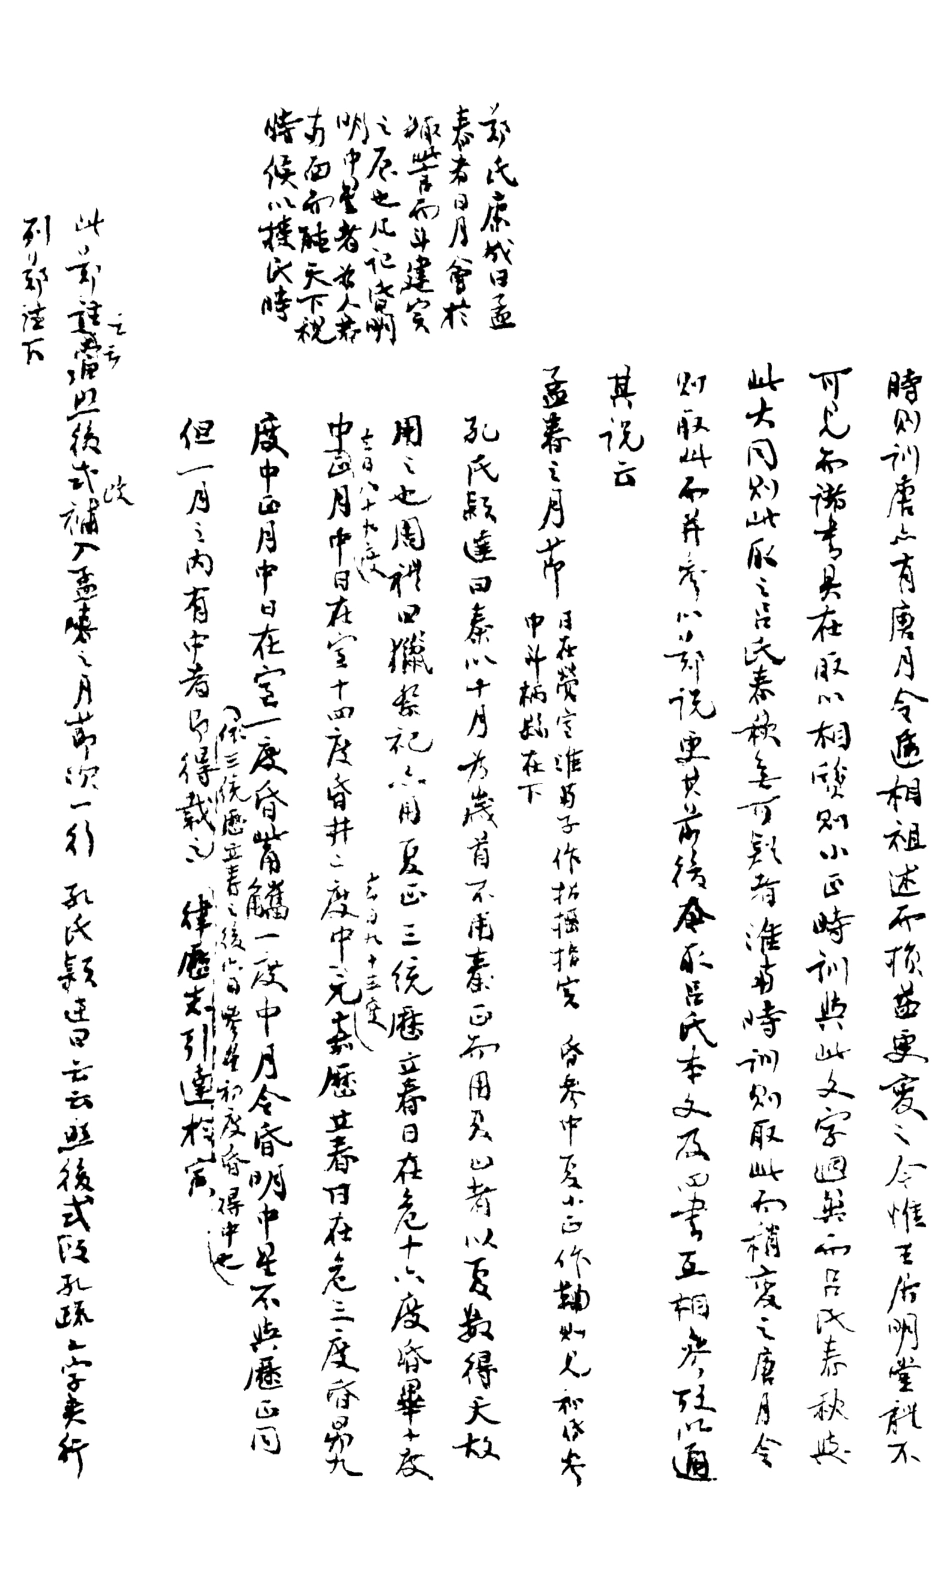 時則訓唐亦有唐月令遞相祖述而損益更變之今惟王居明堂禮不
可見而諸書具在取以相證則小正時訓與此文字迥異而呂氏春秋與
此大同則此取之呂氏春秋無可疑者淮南時訓則取此而稍變之唐月令
則取此而并參以鄭說更其前後今取呂氏本文及四書互相參預以通
其說云
孟春之月節
日在營室淮南子作招搖指寅 昏參中夏小正作鞠則見初昏參
中斗柄縣在下
鄭氏康成曰孟
春者日月會於
娵訾而斗建寅
之辰也凡記昏明
明中星者為人君
南面而聽天下視
時候以授民時
孔氏穎達曰秦以十月為歲首不用秦正而用夏正者以夏數得天故
用之也周禮曰獺祭祀亦用夏正三統曆立春日在危十六度昏畢十度
去日八十九度
中正月中日在室十四度昏井二度中元嘉曆立春日在危三度昏昴九
去日九十三度
度中正月中日在室一度昏觜觿一度中月令昏明中星不與曆正同
但一月之內有中者即得載之 律曆志引達於寅
依三統曆立春之後六日參星初度昏得中也
此鄭註當照後式補入孟春之月節次一行 孔氏穎達曰云云照後式改孔疏二字夾行
云云
改
列鄭註下